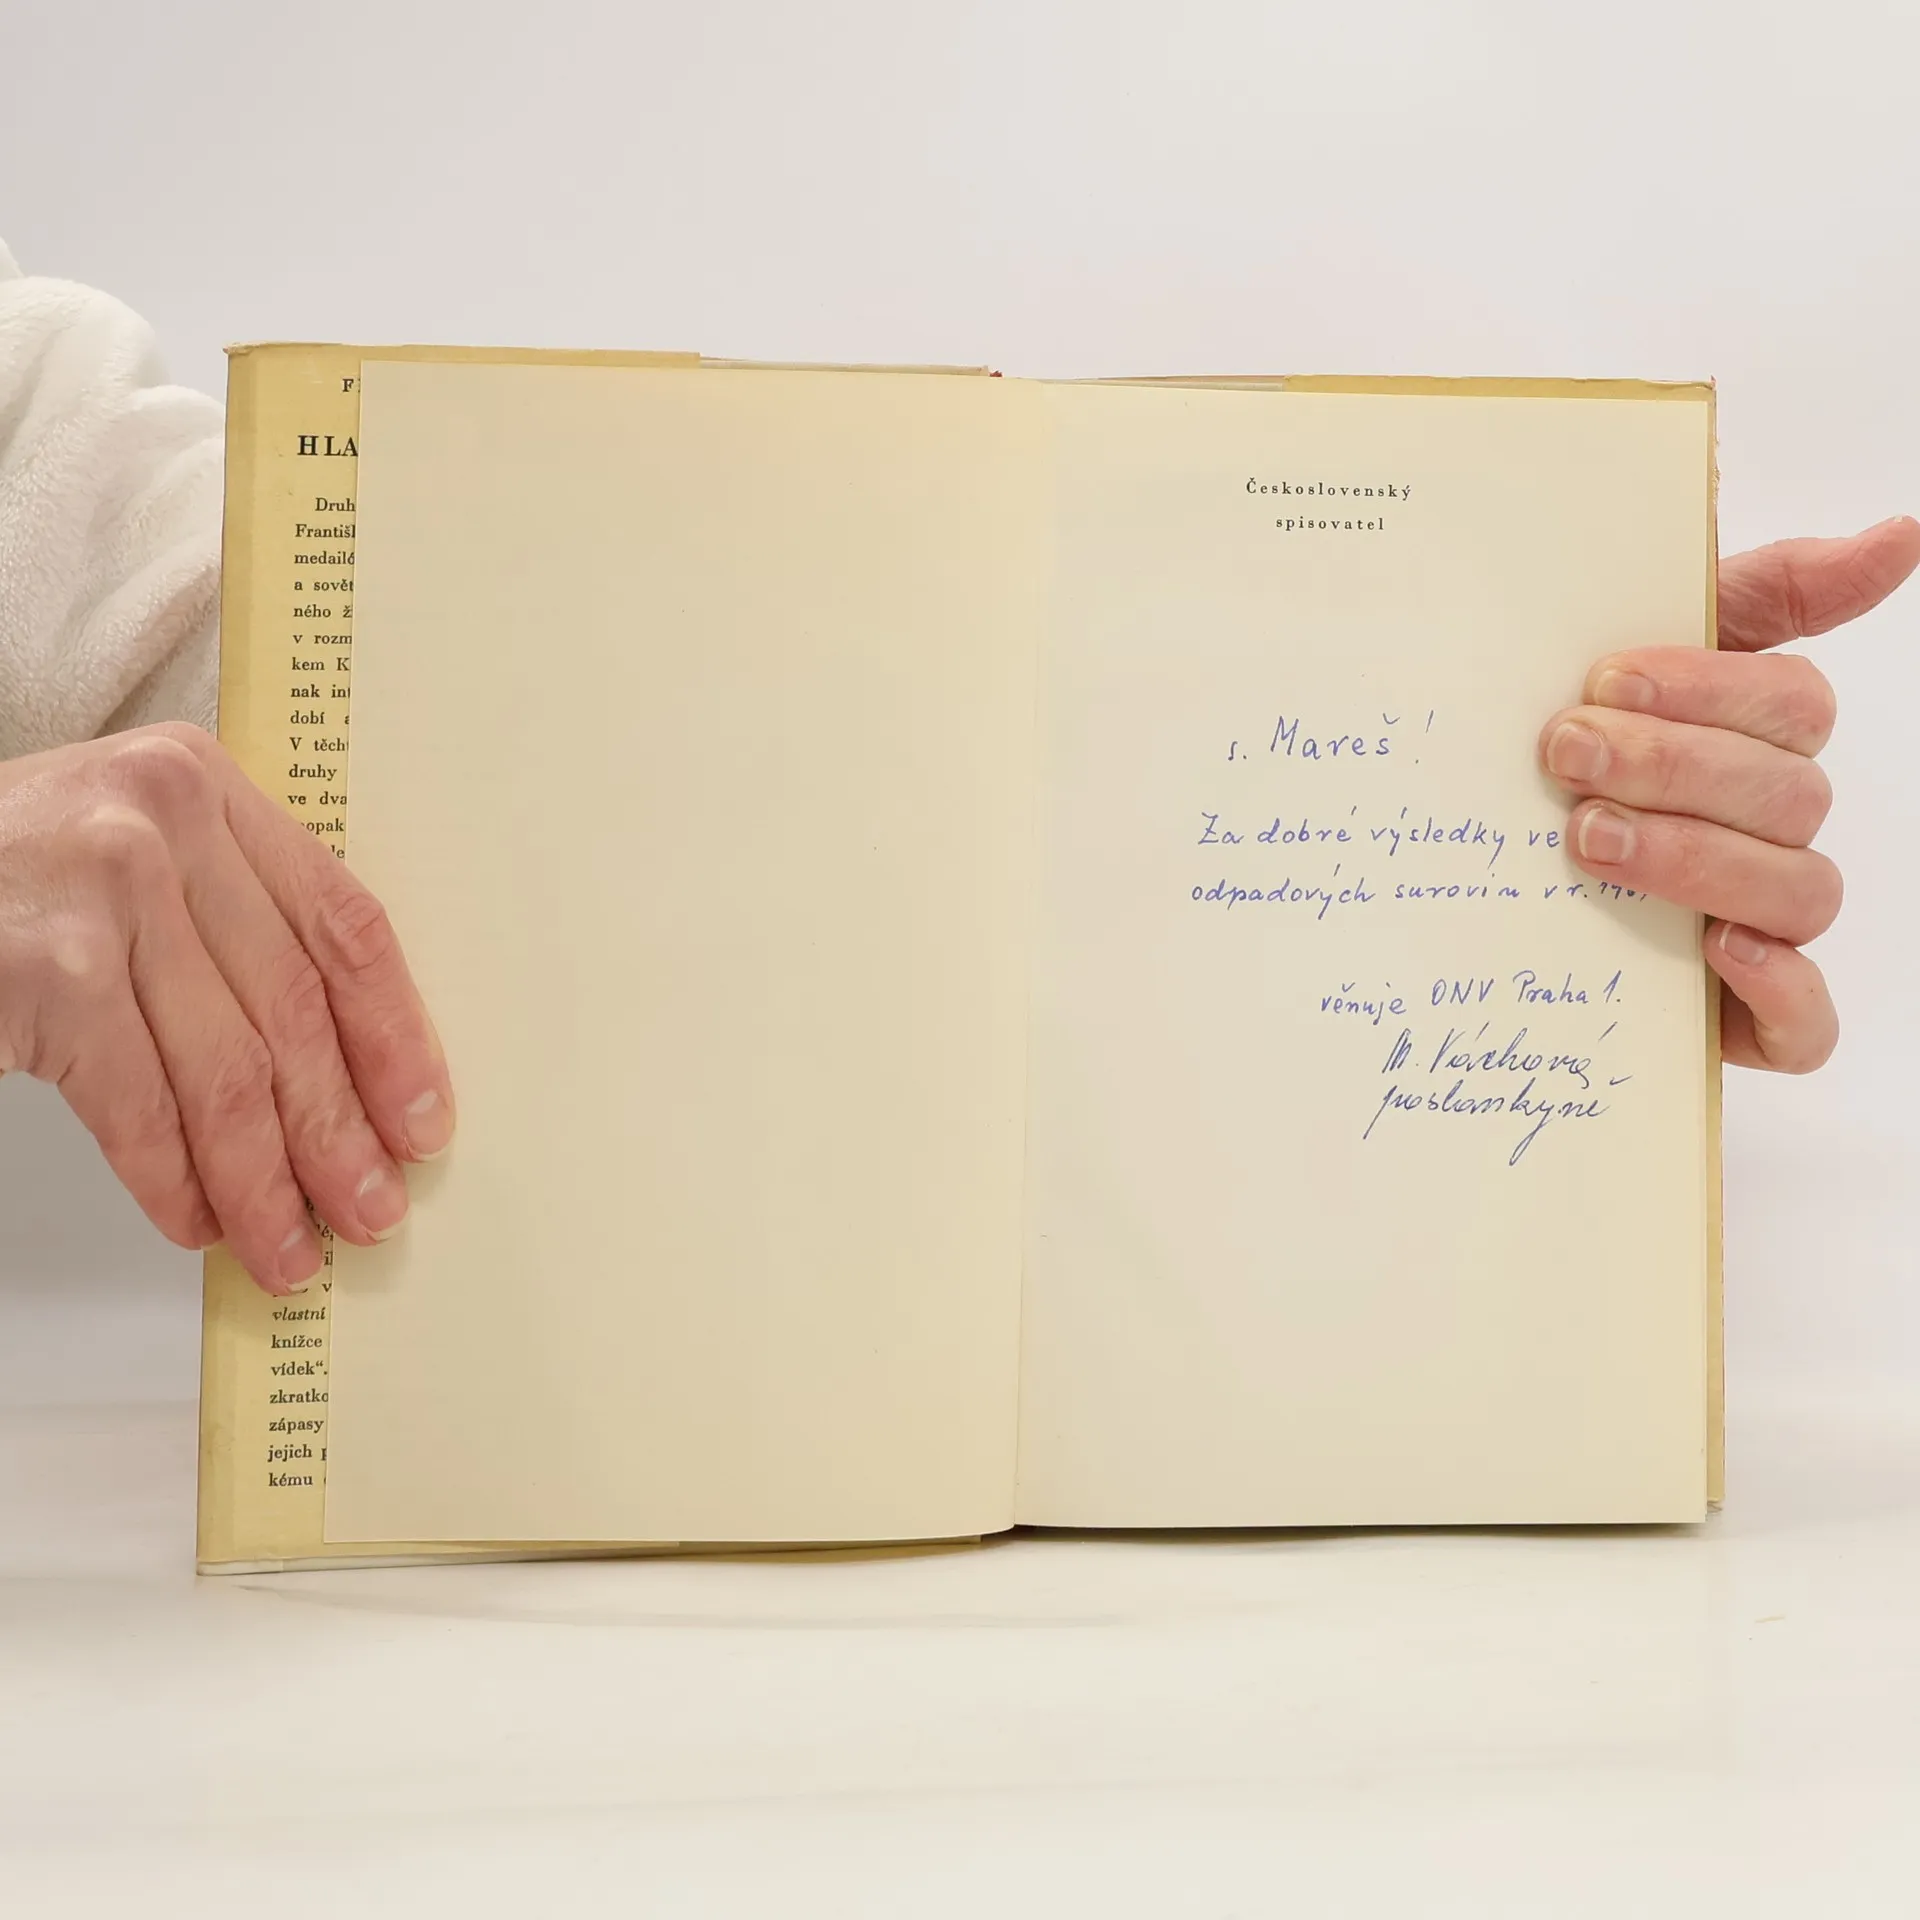 F
HLA
Druh
Františ
medailó
a sovět
ného ž
v rozm
kem K
nak in
dobí a
V těch
druhy
ve dva
opak
le
lé,
v
vlastní
knížce
vídek“.
zkratko
zápasy
jejich p
kému
Československý
spisovatel
s. Mareš!
Za dobré výsledky ve
odpadových surovin v r.
věnuje ONV Praha 1.
M. Váchová
poslankyně